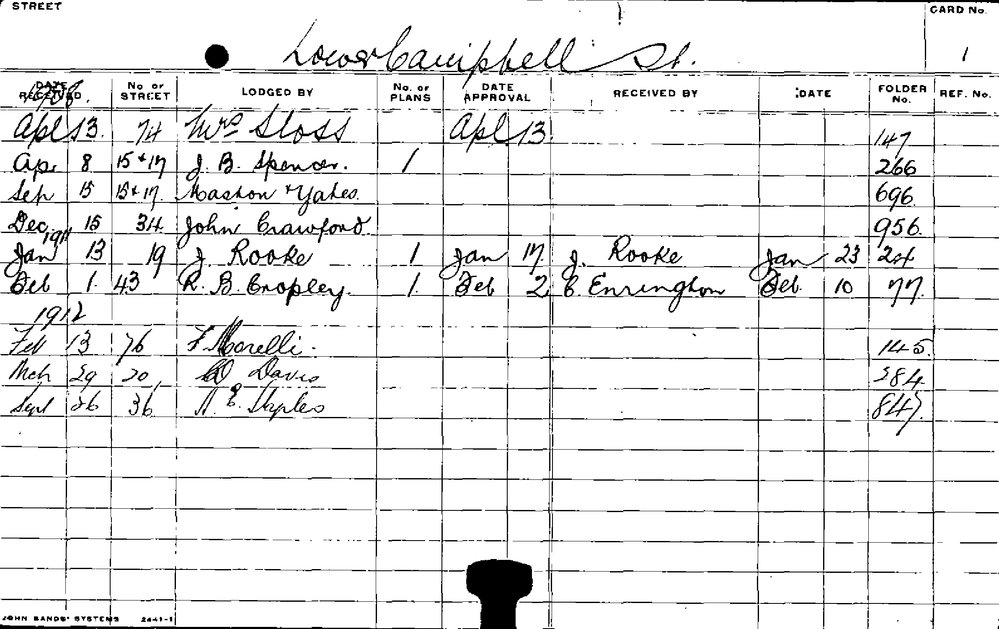 STREET CARD No.
Lower Campbell St. 1
DATE RECEIVED No. OF STREET LODGED BY No. OF PLANS DATE APPROVAL RECEIVED BY DATE FOLDER No. REF. No.
1908.
Apl 13. 74 Mrs Sloss Apl. 13. 147
Ap. 8 15 & 17 J. B. Spencer. 1 266
Sep 15 15 & 17. & Yates. 696.
Dec. 15 34. John Crawford. 956.
1911
Jan 13 19 J. Rooke 1 Jan 17. J. Rooke Jan 23 24
Feb 1. 43 R. B. Cropley. 1. Feb 2 E. Errington Feb. 10 77.
1912
Feb 13 76 F. Morelli. 145.
Mch 29 20, Davis 284.
Sept 26 36. Staples 847.
JOHN SANDS' SYSTEMS 2441-1